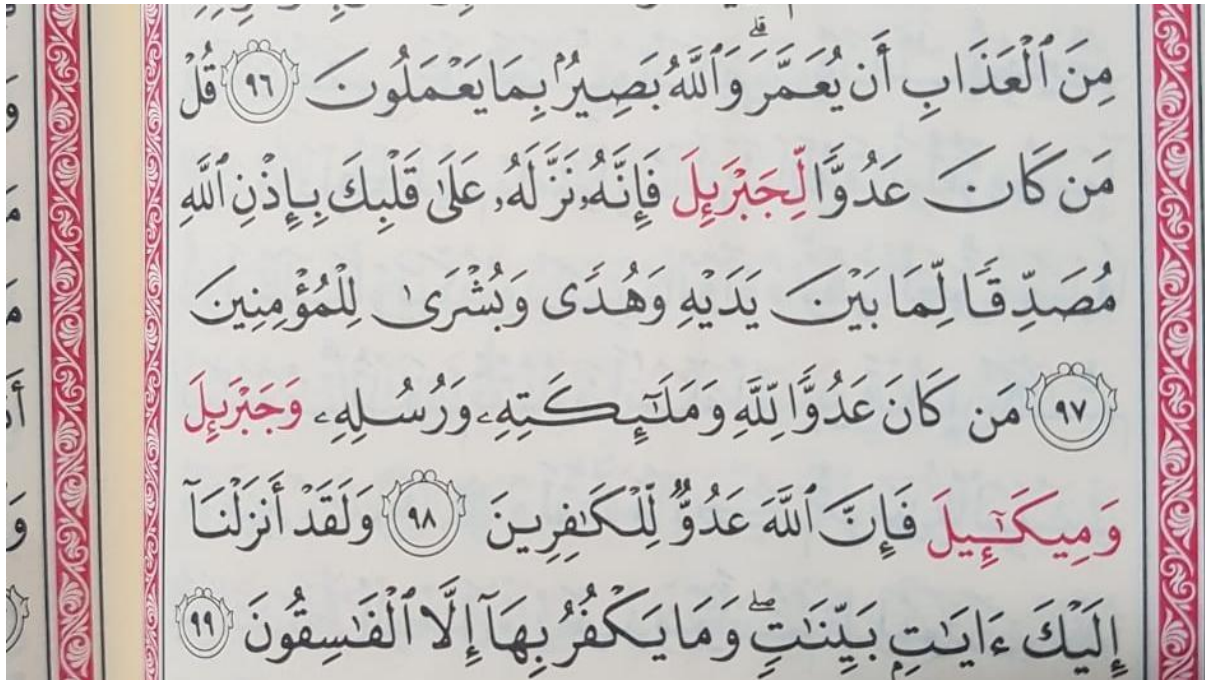 مِنَ ٱلْعَذَابِ أَن يُعَمَّرَ ۗ وَٱللَّهُ بَصِيرُۢ بِمَا يَعْمَلُونَ ٩٦ قُلْ
مَن كَانَ عَدُوًّا لِّجَبْرَئِلَ فَإِنَّهُۥ نَزَّلَهُۥ عَلَىٰ قَلْبِكَ بِإِذْنِ ٱللَّهِ
مُصَدِّقًا لِّمَا بَيْنَ يَدَيْهِ وَهُدًى وَبُشْرَىٰ لِلْمُؤْمِنِينَ
٩٧ مَن كَانَ عَدُوًّا لِّلَّهِ وَمَلَٰٓئِكَتِهِۦ وَرُسُلِهِۦ وَجَبْرَئِلَ
وَمِيكَٰٓئِيلَ فَإِنَّ ٱللَّهَ عَدُوٌّ لِّلْكَٰفِرِينَ ٩٨ وَلَقَدْ أَنزَلْنَآ
إِلَيْكَ ءَايَٰتِۭ بَيِّنَٰتٍ ۖ وَمَا يَكْفُرُ بِهَآ إِلَّا ٱلْفَٰسِقُونَ ٩٩